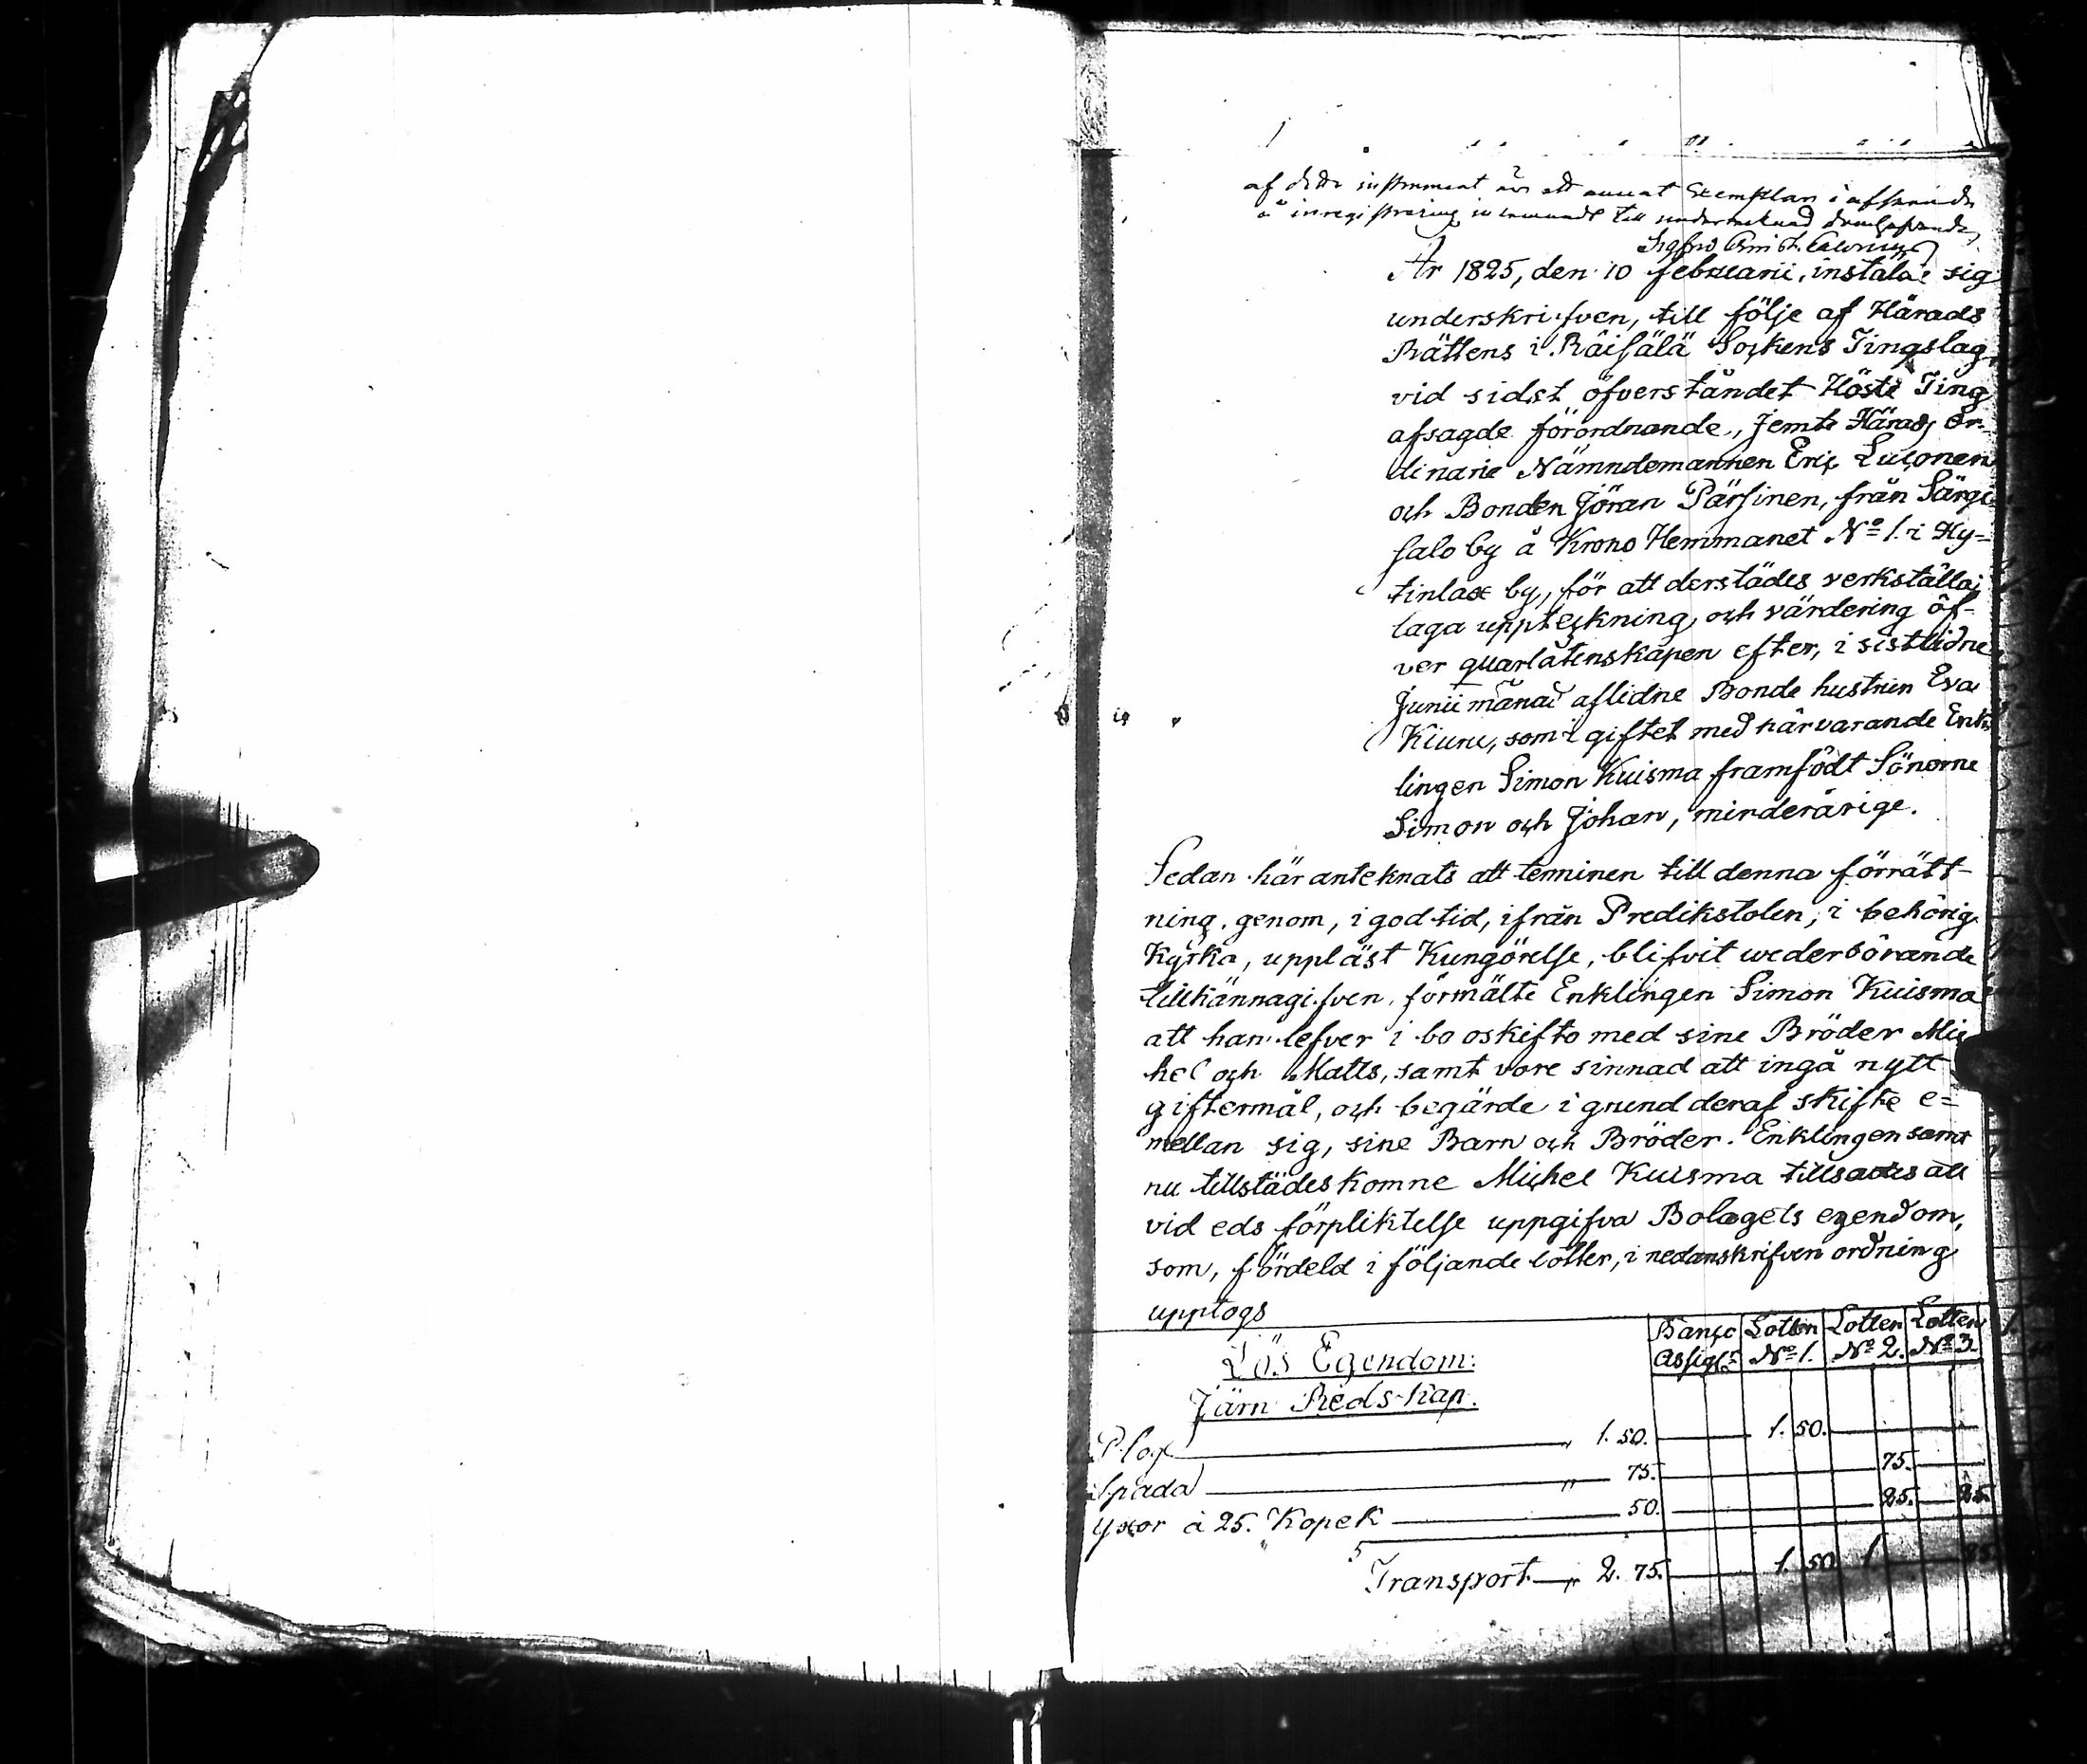 af detta instrument är ett annat Exemplar i afskrift
å inregistrering inlemnadt till undertecknad domhafvande
År 1825, den 10 februarii, instälde sig
underskrifven, till följe af Härads
Rättens i Räisälä Sockens Tingslag,
vid sidst öfverståndet Höste Ting
afsagde förordnande, jemte Härads Or-
dinarie Nämndemannen Eric Lusonen
och Bonden Jöran Pärsinen, från Särgi-
salo by å Krono Hemmanet No 1. i Hy-
tinlax by, för att derstädes verkställa
laga uppteckning och värdering öf-
ver quarlåtenskapen efter, i sistlidne
Junii månad aflidne Bonde hustrun Eva
Kiuru, som i giftet med härvarande Enk-
lingen Simon Kuisma framfödt Sönerne
Simon och Johan, minderårige.
Sedan här anteknats att terminen till denna förrätt-
ning, genom, i god tid, ifrån Predikstolen, i behörig
Kyrka, uppläst Kungörelse, blifvit wederbörande
tillkännagifven, förmälte Enklingen Simon Kuisma
att han lefver i bo oskifto med sine Bröder Mic
hel och Matts, samt vore sinnad att ingå nytt
giftermål, och begärde i grund deraf skifte e=
mellan sig, sine Barn och Bröder. Enklingen samt
nu tillstädeskomne Michel Kuisma tillsades att
vid eds förpliktelse uppgifva Bolagets egendom,
som, fördeld i följande lotter, i nedanskrifven ordning
upptogs
Banco Assigr. Lotten No 1. Lotten No 2. Lotten No 3.
Lös Egendom:
Järn Redskap.
Plog 1. 50. 1. 50.
Spada 75. 75.
yxor à 25. Kopek 50. 25. 25.
Transport 2. 75. 1. 50 1 25